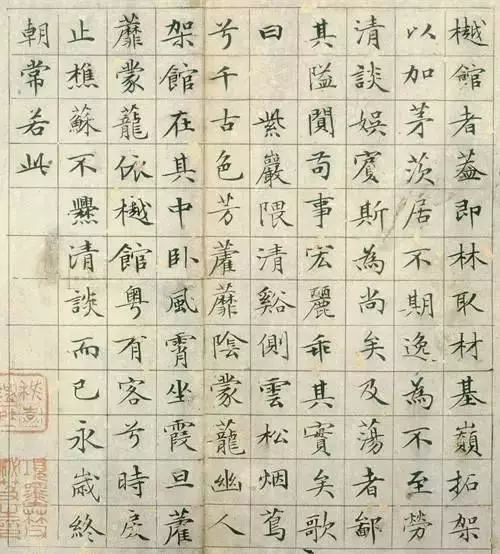 樾館者蓋即林取材基巔拓架
以加茅茨居不期逸為不至勞
清談娛賓斯為尚矣及蕩者鄙
其隘閴苟事宏麗乖其實矣歌
曰紫巖隈清谿側雲松烟蔦
兮千古色芳藿蘼陰蒙蘢幽人
架館在其中卧風霄坐霞旦藿
蘼蒙蘢依樾館粵有客兮時戾
止樵蘇不爨清談而已永歲終
朝常若此